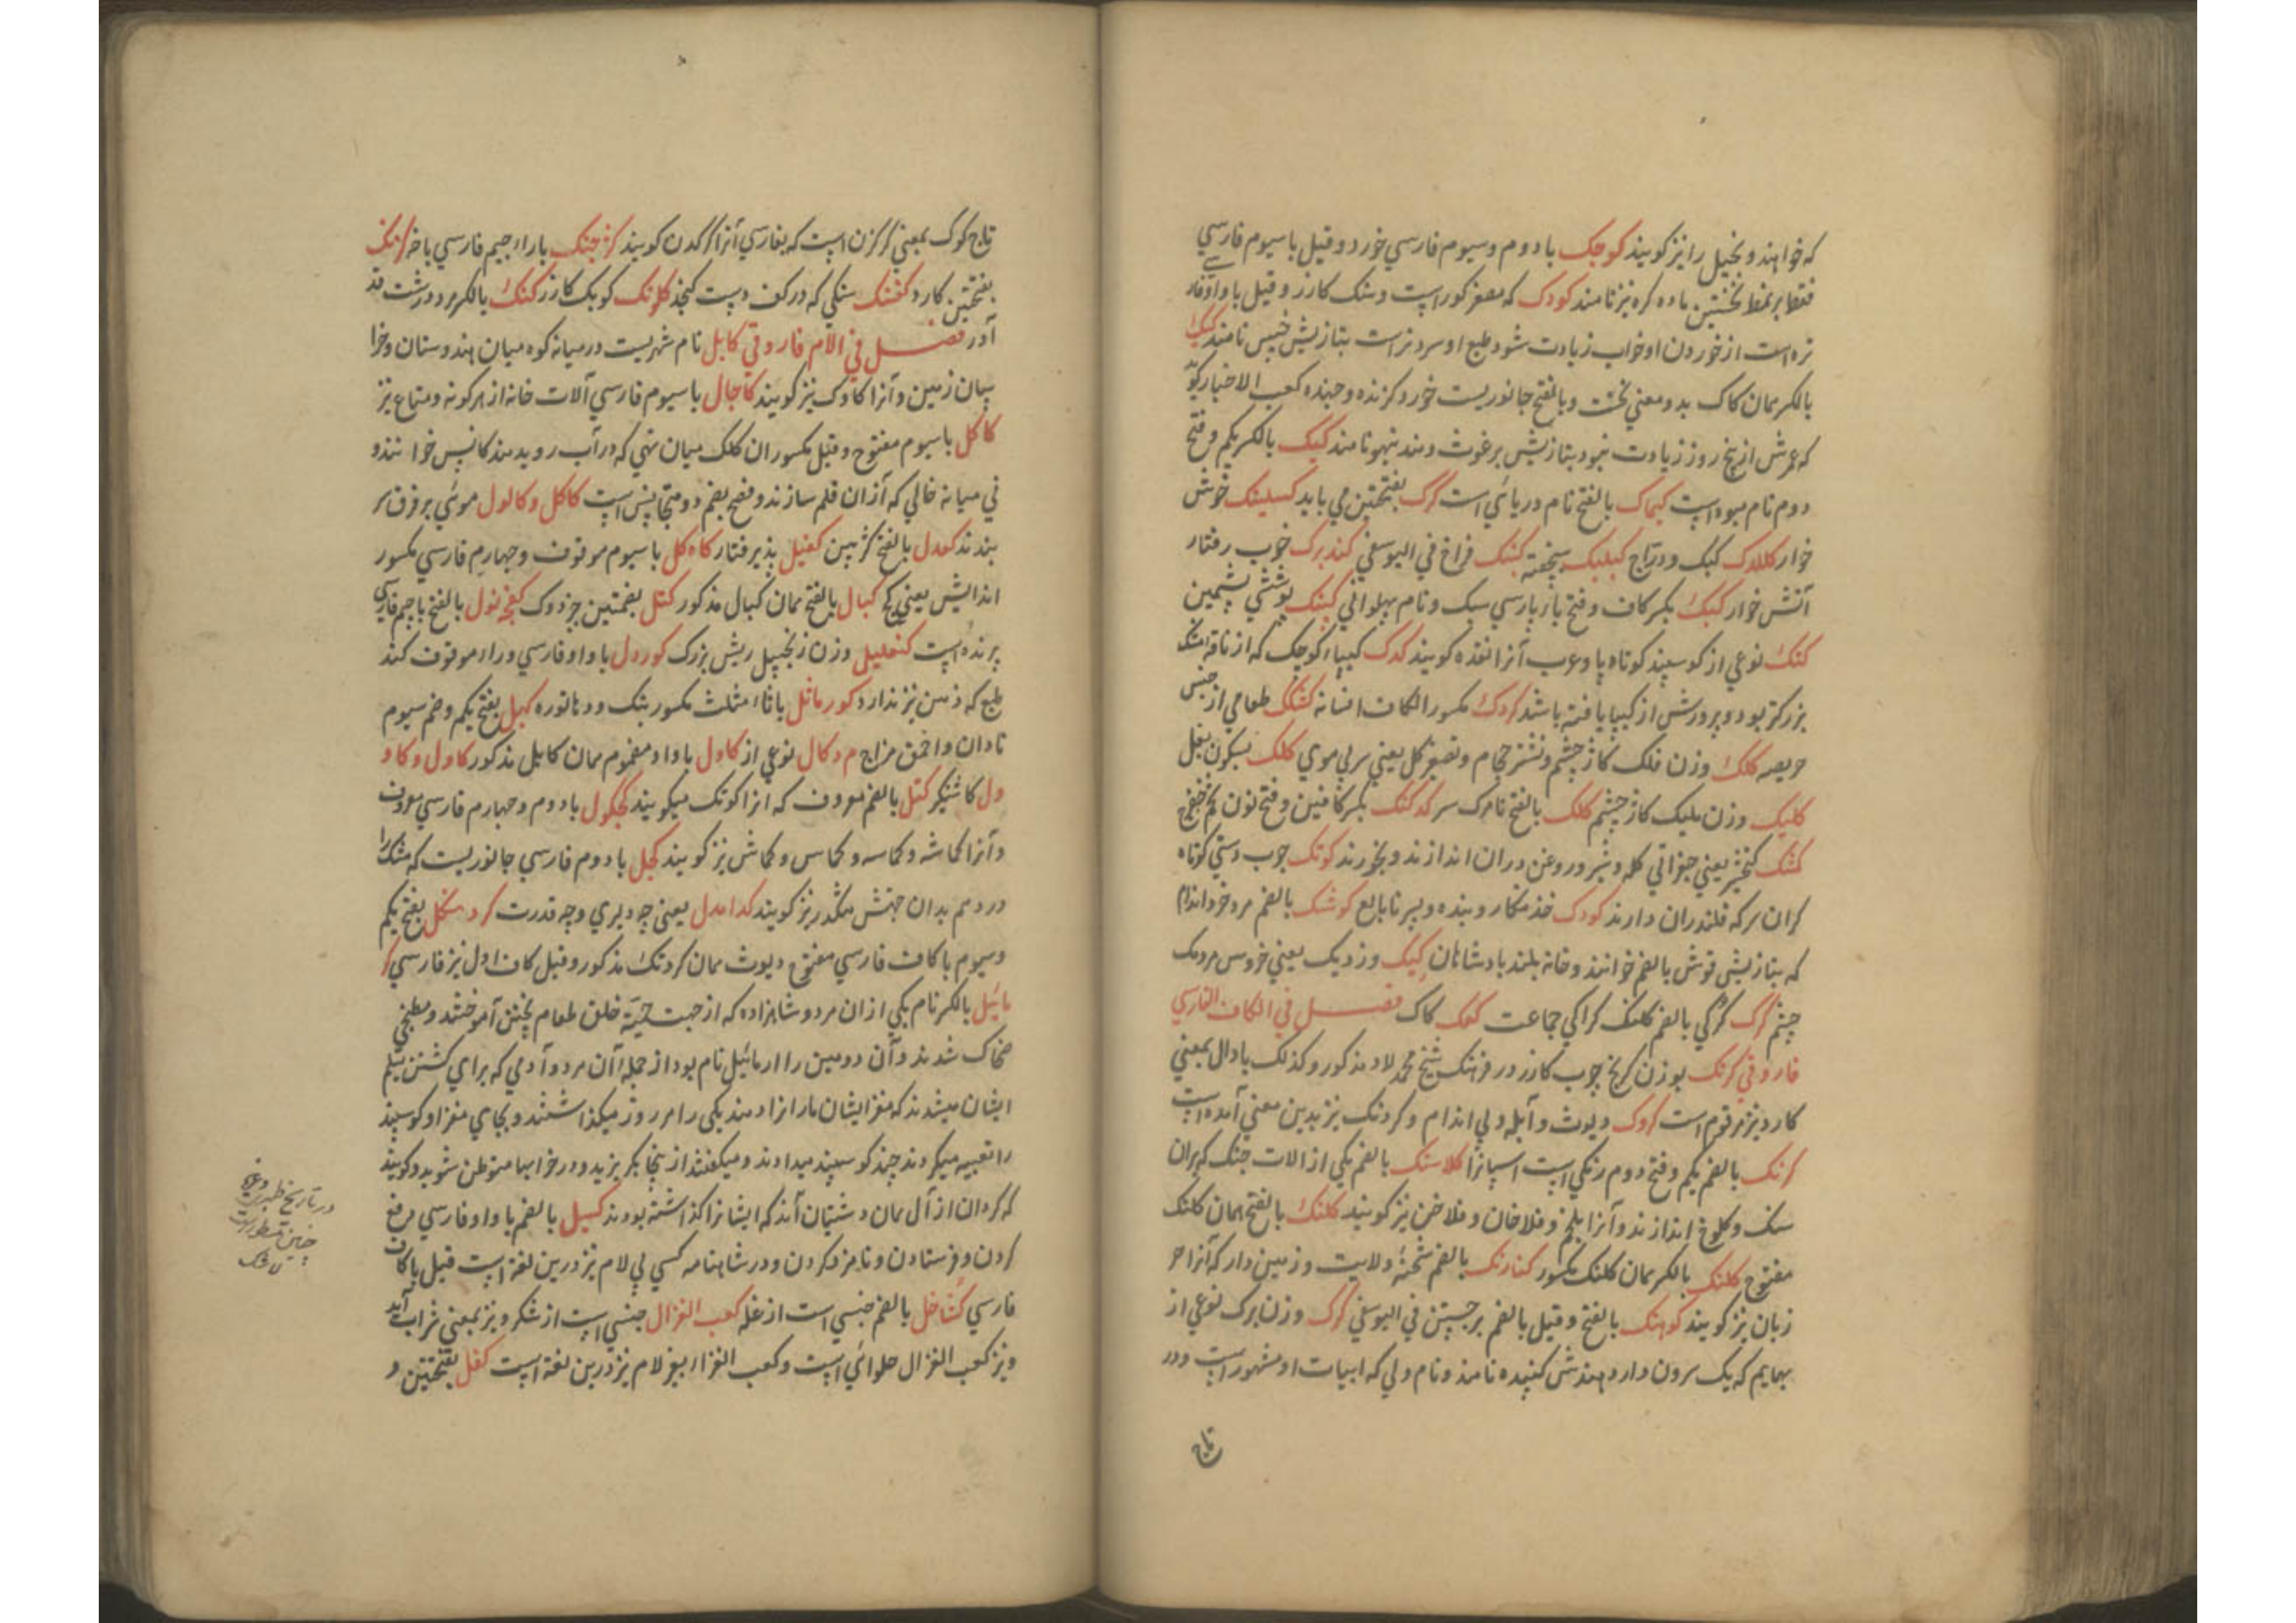 که خوانند و بخیل را نیز کویند کوجک با دوم وسیوم فارسی خورد و قیل با سیوم فارسی
فقط نخستین ماده کره نیز نامند کودک که مصغر کور است و سنک کازر و قیل با واو فار سے
تره است از خوردن او خواب زیادت شود طبع او سرد تر است بتازیش خس نامند کیک
بالکسر همان کاک بدو معنی نخست و بالفتح جانوریست خورد کزنده و جهنده کعب الاخبار کوید
که عمرش از پنج روز زیادت نبود بتازیش برغوث و هند پهو نامند کیک بالکسر یکم و فتح
دوم نام میوه است کیماک بالفتح نام دریائی است کرک بفتحتین می باید کسلینک خوش
خوار کللک کبک و دراج کبلبک پخته کشک فراخ فی الیوسفی کندرک خوب رفتار
آتش خوار کبک بکسر کاف و فتح باز پارسی سبک و نام پهلوانی کپنک پوششی پشمین
کنک نوعی از کوسپند کوتاه پا و عرب آنرا نقذه کویند کدک کیپاء کوچک که از ناقه
بزرکتر بود و پرورش از کیپا یافته باشد کردک مکسور الکاف افسانه کشک طعامی از جنس
هریسه کلک وزن فلک کاژ چشم و نشتر حجام و تصغیر کل یعنی سر بی موی کلک بسکون بغل
کلیک وزن ملیک کاژ چشم کلک بالفتح تارک سر کدکنک بکسر کافین و فتح نون
کشک یعنی جغراتی که و شیر و روغن دران اندازند و بخورند کوتک چوب دستی کوتاه
کران سر که قلندران دارند کودک خدمتکار و بنده و پسر نابالغ کوشک بالضم مرد خرد اندام
که بتازیش قوش بالضم خوانند و خانه بلند بادشاهان کیک وزدیک یعنی خروس مردمک
چشم کرک کرکی بالضم کلنک کراکی جماعت کعک کاک فصل فی الکاف الفارسی
فاروقی کرنک بوزن کریخ چوب کازر در فرهنک شیخ محمد لاد مذکور و کذلک با دال بمعنی
کارد نیز مرقوم است کروک دیوث و آبله ولی اندام و کردنک نیز بدین معنی آمده است
کرنک بالضم یکم و فتح دوم رنکی است اسپانرا کلاسنک بالضم یکی از الات جنک که بران
سنک و کلوخ اندازند و آنرا بلخم و فلاخان و فلاخن نیز کویند کلنک بالفتح همان کلنک
مفتوح کلنک بالکسر همان کلنک مکسور کنارنک بالضم شحنهٔ ولایت و زمین دار که آنرا مر
زبان نیز کویند کوتنک بالفتح و قیل بالضم برجستن فی الیوسفی کرک وزن برک نوعی از
بهایم که یک سرون دارد هندش کنیده نامند و نام ولی که ابیات او مشهور است و در
تاج
تاج کوک بمعنی کرکزن است که بفارسی آنرا کرکدن کویند کژجنک با راء جیم فارسی باخه کرنک
بفتحتین کارد کفشنک سنکی که در کف دست کنجد کلونک کوبک کازر کنک بالکسر درشت قد
آور فصل فی اللام فاروقی کابل نام شهریست در میانه کوه میان هندوستان و خرا
سان زمین و آنرا کاوک نیز کویند کاجال با سیوم فارسی آلات خانه از هر کونه و متاع نیز
کاکل با سیوم مفتوح و قیل مکسور ان کلک میان تهی که در آب روید هند کانس خوانند و
نی میانه خالی که ازان قلم سازند و فتح بضم دو متجانس است کاکل و کالول موئی بر فرق سر
بندند کعدل بالفتح کژ بین کفیل پذیرفتار کاه کل با سیوم موقوف و چهارم فارسی مکسور
اندایش یعنی کج کپال بالفتح همان کپال مذکور کتل بضمتین چزدوک کفچه نول بالفتح با جیم فارسی
پرنده است کنفلیل وزن زنجبیل ریش بزرک کوردل با واو فارسی و راء موقوف کند
طبع که ذهن تیز ندارد کورماثل با ثاء مثلث مکسور بنک و دهاتوره کبل بفتح یکم و ضم سیوم
نادان و احمق مزاج مردکال نوعی از کاول با واو مضموم همان کابل مذکور کاول و کاو
ول کاشنیکر کتل بالضم معروف که انرا کوتک میکویند کجکول با دوم و چهارم فارسی معروف
و آنرا کماشه و کماسه و کماس و کماش نیز کویند کجل با دوم فارسی جانوریست که مشک را
در دهم بدان جهتش مشکدر نیز کویند کدامدل یعنی چه دلیری و چه قدرت کردمنکل بفتح یکم
وسیوم با کاف فارسی مفتوح دیوث همان کردنک مذکور و قیل کاف اول نیز فارسی کر
مائیل بالکسر نام یکی ازان مرد و شاهزاده که از جهت حیلت خلق طعام پختن آموختند و مطبخی
ضحاک شدند و آن دومین را ارمائیل نام بود از جمله آن مرد و آدمی که برای کشتن تسلیم
ایشان میشدند که مغز ایشان مارانرا دهند یکی را هر روز میکذاشتند و بجای مغز او کوسپند
را تعبیه میکردند چند کوسپند میدادند و میکفتند از ینجا بکریزید و در خرابها متوطن شوید و کویند
که کردان از آل همان دشتیان اند که ایشانرا کذاشته بودند کسیل بالضم با واو فارسی مرفع
کردن و فرستادن و نامزد کردن و در شاهنامه کسی بی لام نیز درین لغة است قیل با کاف
فارسی کشاخل بالضم جنسی است از غله کعب الغزال جنسی است از شکر و نیز بمعنی شراب آید
و نیز کعب الغزال حلوائی است و کعب الغزا بیغیر لام نیز درین لغة است کفل بفتحتین و
در تاریخ طبری وغیره
چنین مسطور است